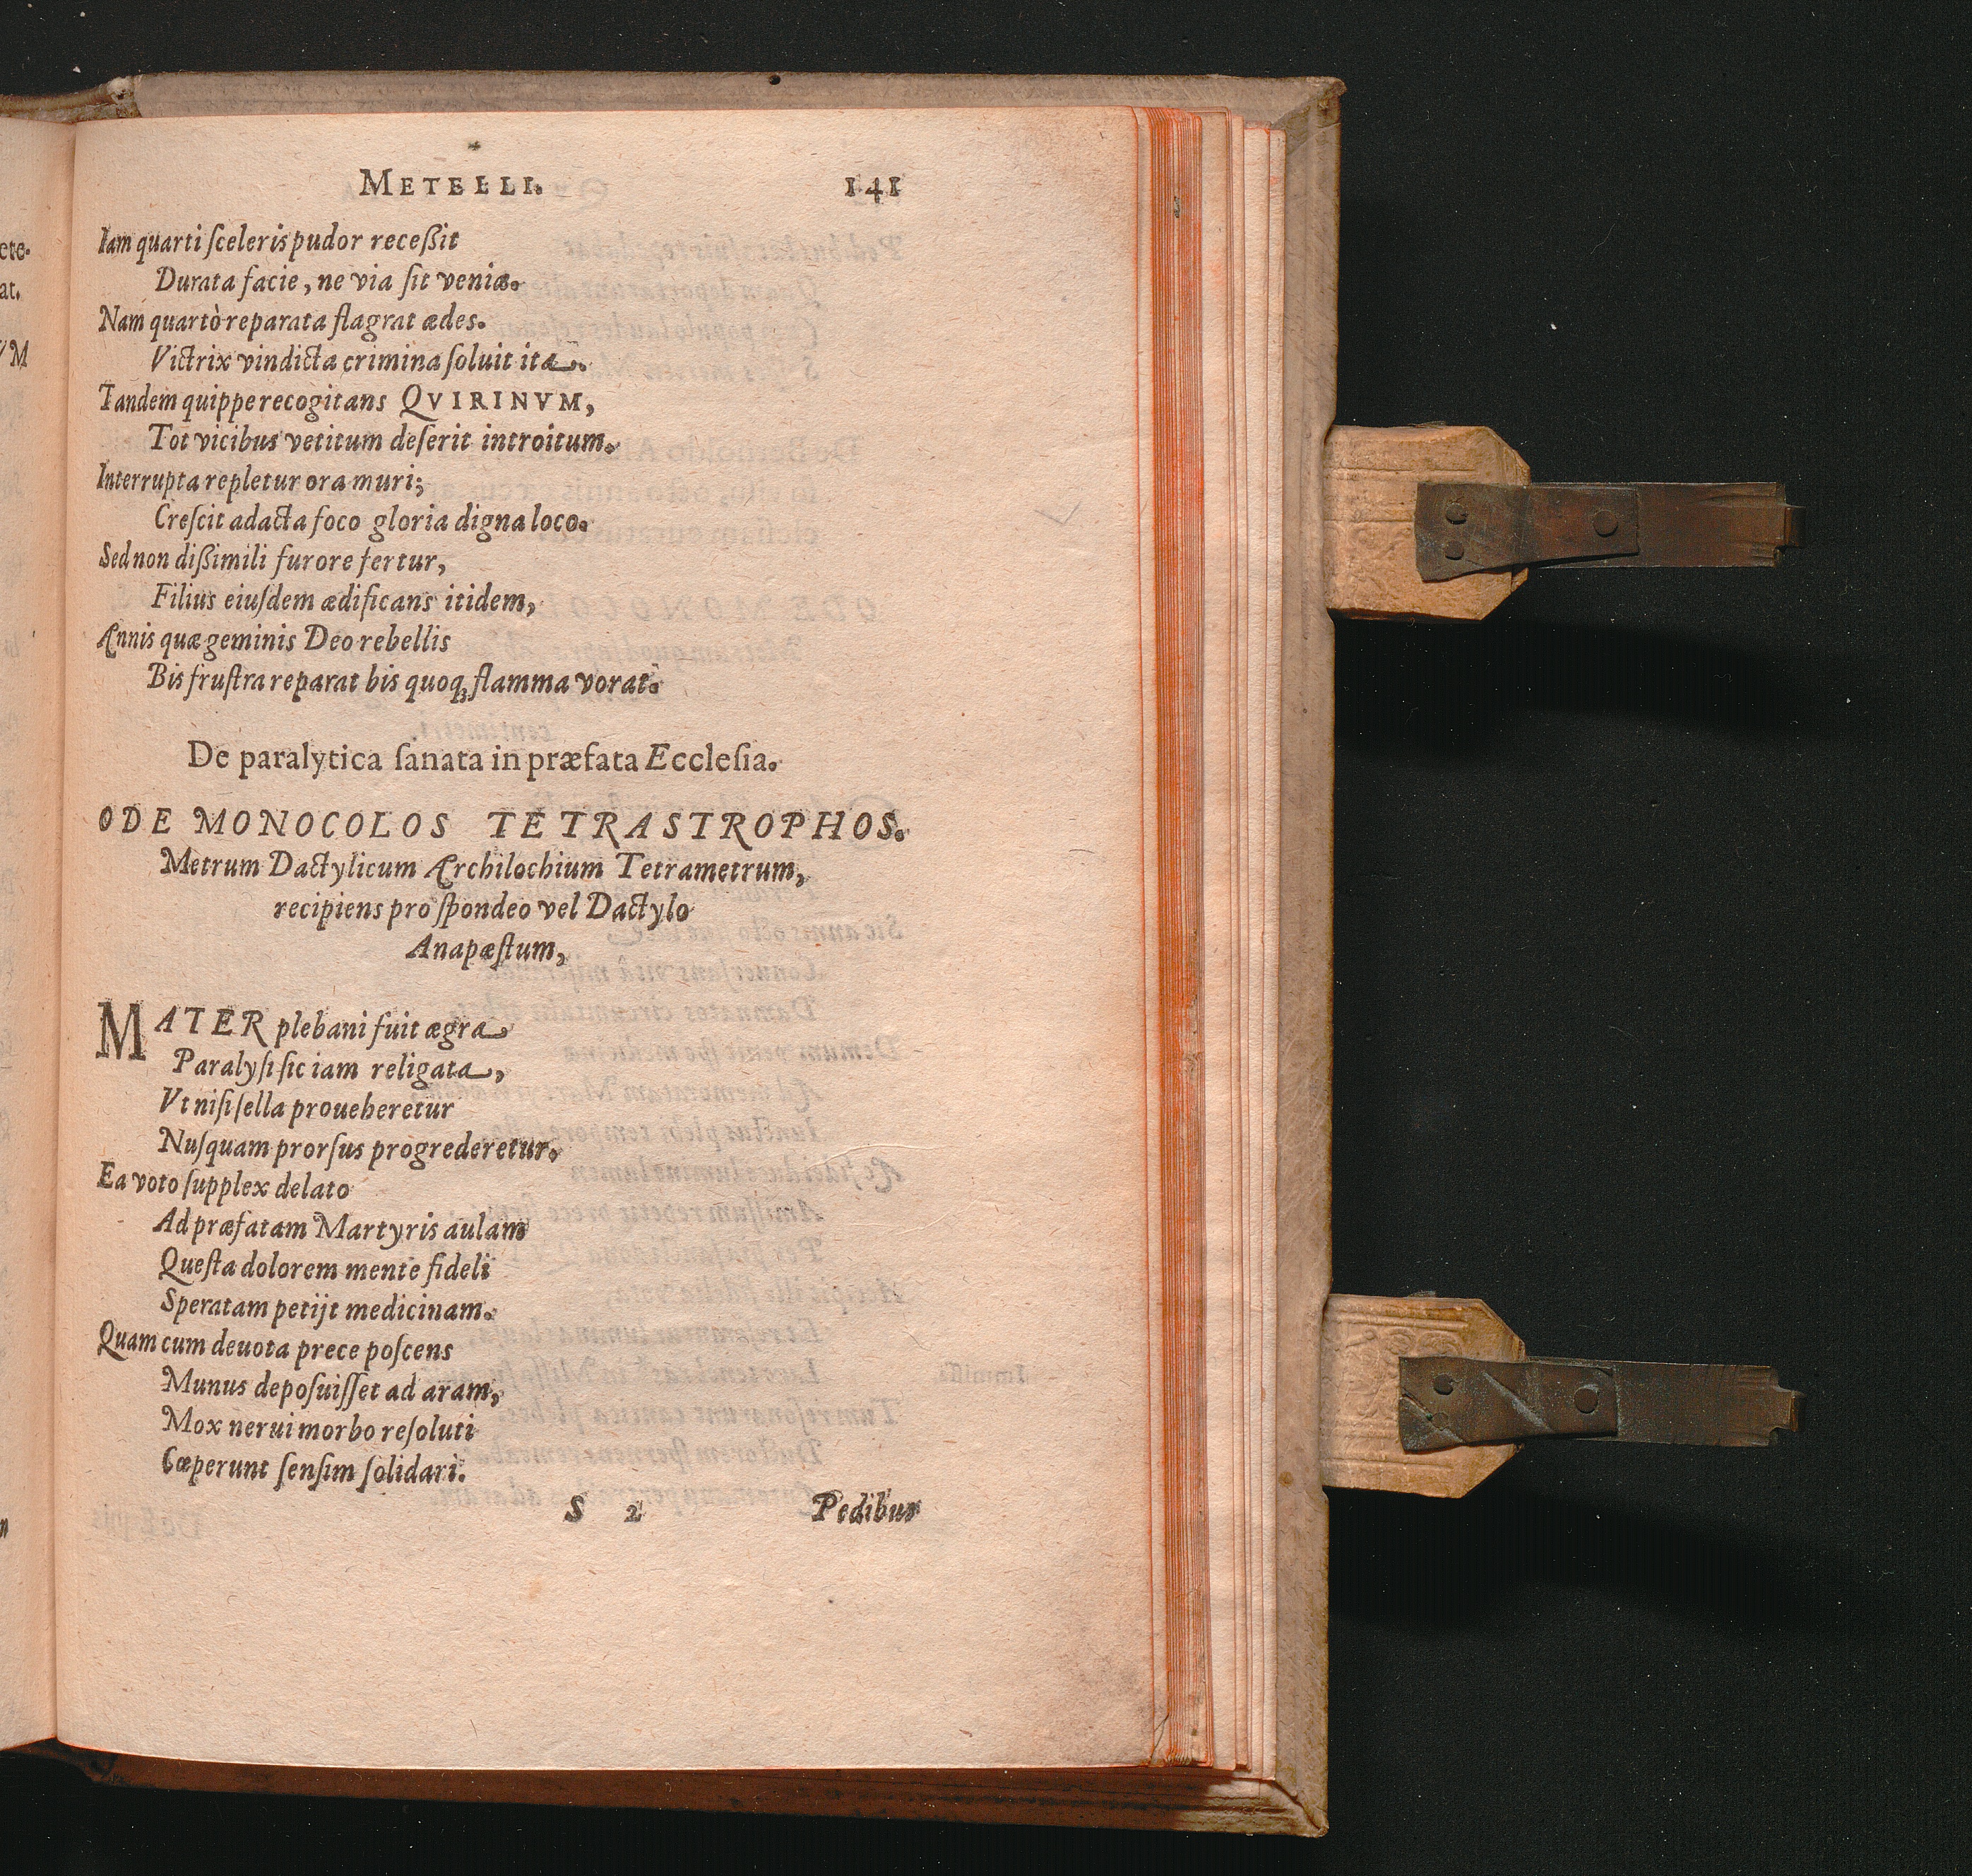 METELLI. 141
Iam quarti ſceleris pudor receßit
Durata facie, ne via ſit veniæ.
Nam quartò reparata flagrat ædes.
Victrix vindicta crimina ſoluit ita.
Tandem quippe recogitans QVIRINVM,
Tot vicibus vetitum deſerit introitum.
Interrupta repletur ora muri;
Creſcit adacta foco gloria digna loco.
Sed non dißimili furore fertur,
Filius eiuſdem ædificans itidem,
Annis quæ geminis Deo rebellis
Bis fruſtra reparat bis quoq; flamma vorat.
De paralytica ſanata in præfata Eccleſia.
ODE MONOCOLOS TETRASTROPHOS.
Metrum Dactylicum Archilochium Tetrametrum,
recipiens pro ſpondeo vel Dactylo
Anapæſtum,
MATER plebani fuit ægra
Paralyſi ſic iam religata,
Vt niſi ſella proueheretur
Nuſquam prorſus progrederetur.
Ea voto ſupplex delato
Ad præfatam Martyris aulam
Queſta dolorem mente fideli
Speratam petijt medicinam.
Quam cum deuota prece poſcens
Munus depoſuiſſet ad aram,
Mox nerui morbo reſoluti
Cœperunt ſenſim ſolidari.
S 2 Pedibus
ete.
at.
VM